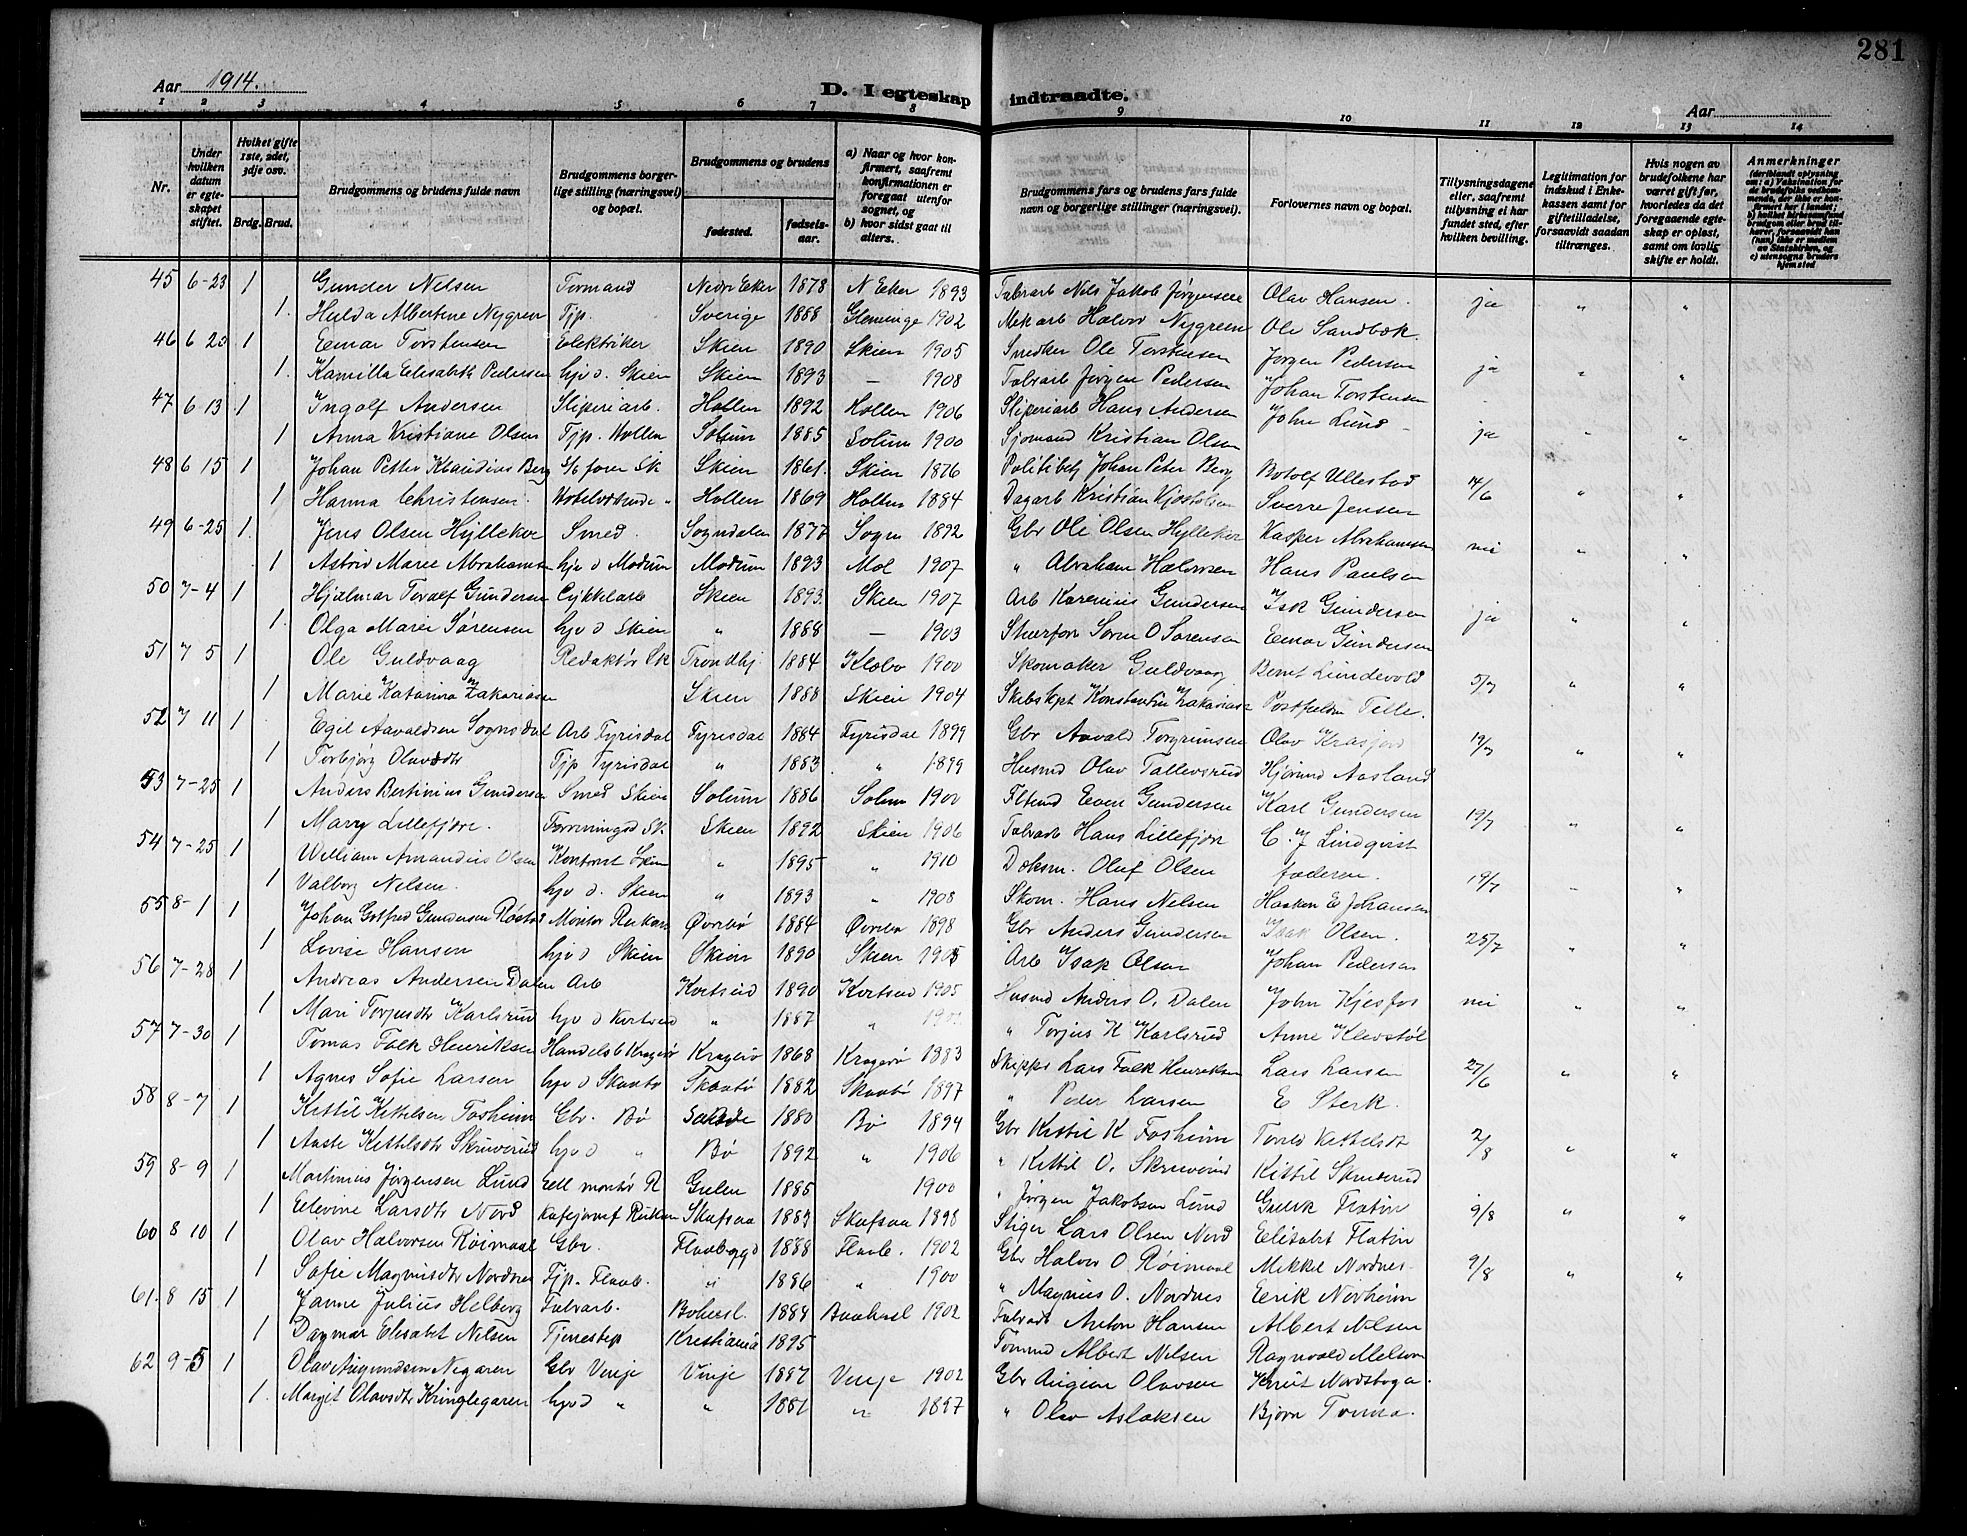 281
Aar 1914.
D. I egteskap indtraadte.
Aar
1 2 3 4 5 6 7 8 9 10 11 12 13 14
Nr.
Under hvilken datum er egteskapet stiftet.
Hvilket gifte 1ste, 2det, 3dje osv.
Brdg. Brud.
Brudgommens og brudens fulde navn
Brudgommens borgerlige stilling (næringsvei) og bopæl.
Brudgommens og brudens
fødested.
fødselsaar.
a) Naar og hvor konfirmert, saafremt konfirmationen er foregaat utenfor sognet, og b) hvor sidst gaat til alters.
Brudgommens fars og brudens fars fulde navn og borgerlige stillinger (næringsvei).
Forlovernes navn og bopæl.
Tillysningsdagene eller, saafremt tillysning ei har fundet sted, efter hvilken bevilling.
Legitimation for indskud i Enkekassen samt for giftetilladelse, forsaavidt saadan tiltrænges.
Hvis nogen av brudefolkene har været gift før, hvorledes da det foregaaende egteskap er opløst, samt om lovlig skifte er holdt.
Anmerkninger
45 6-23 1 Gunder Nelsen Formand Nedre Eker 1878 N Eker 1893 Fabrarb Nils Jakob Jørgensen Olav Hansen. ja " "
1. Hulda Albertine Nygren Tjp. Sverige 1888 Glemmnge 1902 Mek arb Halvor Nygreen Ole Sandbæk.
46 6 20 1 Einar Torstensen Elektriker Skien 1890 Skien 1905 Snedker Ole Torstensen Jørgen Pedersen ja " "
1. Kamilla Elisabeth Pedersen hjv d. Skien Skien 1893 — 1908 Fabrarb Jørgen Pedersen Johan Torstensen
47 6 13 1 Ingolf Andersen Sliperiarb. Hollen 1892 Hollen 1906 Sliperiarb Hans Andersen John Lund
1 Anna Kristiane Olsen Tjp. Hollen Solum 1885 Solum 1900 Sjømand Kristian Olsen ja " "
48 6 15 1 Johan Petter Klaudius Berg Skien 1861. Skien 1876 Politibetj Johan Peter Berg Botolf Ullestad
1 Hanna Christensen. Hollen 1869 Hollen 1884 Dagarb Kristian Sverre Jensen 14/6 " "
49 6-25 1. Jens Olsen Hylleker Smed. Sogndalen 1877 Sogn 1892 Gbr Ole Olsen Hylleker Kasper Abrahamsen nei " "
1 Astrid Marie Abrahamsen hjv d Modum Modum 1893 Mod 1907 " Abraham Halvorsen Hans Paulsen
50 7-4 1 Hjalmar Toralf Gundersen Cykkelarb Skien 1893. Skien 1907 Arb Karenius Gundersen Isak Gundersen ja " "
1. Olga Marie Sørensen hjv d Skien " 1888 — 1903 Søren O Sørensen Einar Gundersen
51 7 5 1 Ole Guldvaag Redaktør Sk Trondhj 1884 Klæbo 1900 Skomaker Guldvaag Bernt Lundevold 5/7 " "
1 Marie Katarina Zakariasen Skien 1888 Skien 1904 Skibskpt Konstantin Zakarias Telle.
52 7 11 1 Egil Aavaldsen Sognsdal Arb Fyrisdal Fyrisdal 1884 Fyrisdal 1899 Gbr Aavald Torgrimsen Olav 12/7 " "
1 Torbjørg Olavsdtr Tjp Fyrisdal " 1883 " 1899 Husmd Olav Tallevsrud Hjørund Aasland
53 7-25 1 Anders Bertinius Gundersen Smed Skien Solum 1886 Solum 1900 Even Gundersen Karl Gundersen 19/7 " "
1 Mary Lillefjære. Skien 1892 Skien 1906 Fabrarb Hans Lillefjære C. J Lindqvist
54 7-25 1 William Amandus Olsen Kontorist Skien " 1895 " 1910 Dæksm. Oluf Olsen faderen. 19/7 " "
1 Valborg Nelsen. hjv d. Skien " 1893 " 1908 Skom. Hans Nelsen Haaken E Johansen
55 8-1 1 Johan Gotfred Gundersen Montør Øvrebø 1884 Øvrebø 1898 Gbr Anders Gundersen Isak Olsen. 25/7 " "
1 Lovise Hansen hjv d Skien Skien 1890 Skien 1905 Arb Isak Olsen Johan Pedersen
56 7-28 1 Andreas Andersen Dalen Arb Kvitseid 1890 Kvitseid 1905 Husmd Anders O. Dalen John Kjesfos nei " "
1 Mari Torjusdtr Karlsrud hjv d Kvitseid " 1887 " " Torjus K Karlsrud Anne Klevstøl
57 7-30 1 Tomas Falk Henriksen Handelsb Kragerø Kragerø 1868 Kragerø 1883 Skipper Lars Falk Henriksen Lars Larsen 27/6 " "
1 Agnes Sofie Larsen hjv d Skaatø Skaatø 1882 Skaatø 1897 " Peder Larsen E Sterk.
58 8-7 1 Kittil Kittelsen Fosheim Gbr. Bø 1880 Bø 1894 Gbr Kittil K Fosheim 2/8 " "
1 Aaste Kittilsdtr Skruverud hjv d " Bø 1892 " 1906 " Kittil O. Skruverud Kittil Skruverud
59 8-9 1 Martinius Jørgensen Lund Eell montør R Gulen 1885 1900 " Jørgen Jakobsen Lund Flatin 9/8 " "
1 Elevine Larsdtr Nord Skafsaa 1883 Skafsaa 1898 Stiger Lars Olsen Nord Elisabet Flatin
60 8 10 1 Olav Halvorsen Røimaal Gbr. Flaabygd 1888 Flaab. 1902 Gbr Halvor O. Røimaal Mikkel Nordnes 9/8 " "
1 Sofie Magnusdtr Nordnes Tjp. Flaab. " 1886 " 1900 " Magnus O. Nordnes Eerik Norheim
61. 8 15 1 Janne Julius Helberg Fabrarb. Bohusl. 1884 Baahusl 1902 Anton Hansen Albert Nilsen
1 Dagmar Elisabet Nilsen Tjenestep Kristiania 1895 Albert Nilsen Ragnvald Melsom
62 9-5 1 Olav Augundsen Negaren Gbr Vinje Vinje 1887 Vinje 1902 Gbr Augun Olavsen Knut Nordsboga.
1. Marget Olavsdtr Kringlegaren hjv d " " 1881 " 1897 " Olav Aslaksen Bjørn